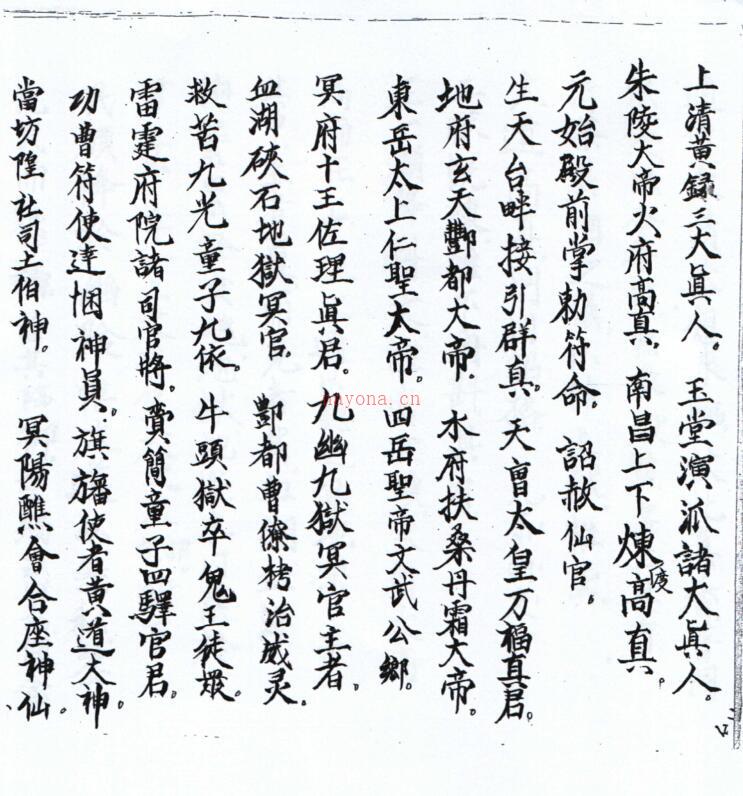 上清黃録三大眞人。玉堂演派諸大眞人。
朱陵大帝火府高真。南昌上下煉度高真。
元始殿前掌勅符命。詔赦仙官。
生天台畔接引群真。天曹太皇万福真君。
地府玄天酆都大帝。水府扶桑丹霜大帝。
東岳太上仁聖大帝。四岳聖帝文武公卿。
冥府十王佐理眞君。九幽九獄冥官主者。
血湖硤石地獄冥官。酆都曹僚栲治威灵。
救苦九光童子九依。牛頭獄卒鬼王徒眾。
雷霆府院諸司官將。賫簡童子四驛官君。
功曹符使達悃神員。旗旛使者黄道大神。
當坊隍社司土伯神。冥陽醮會合座神仙。
nayona.cn